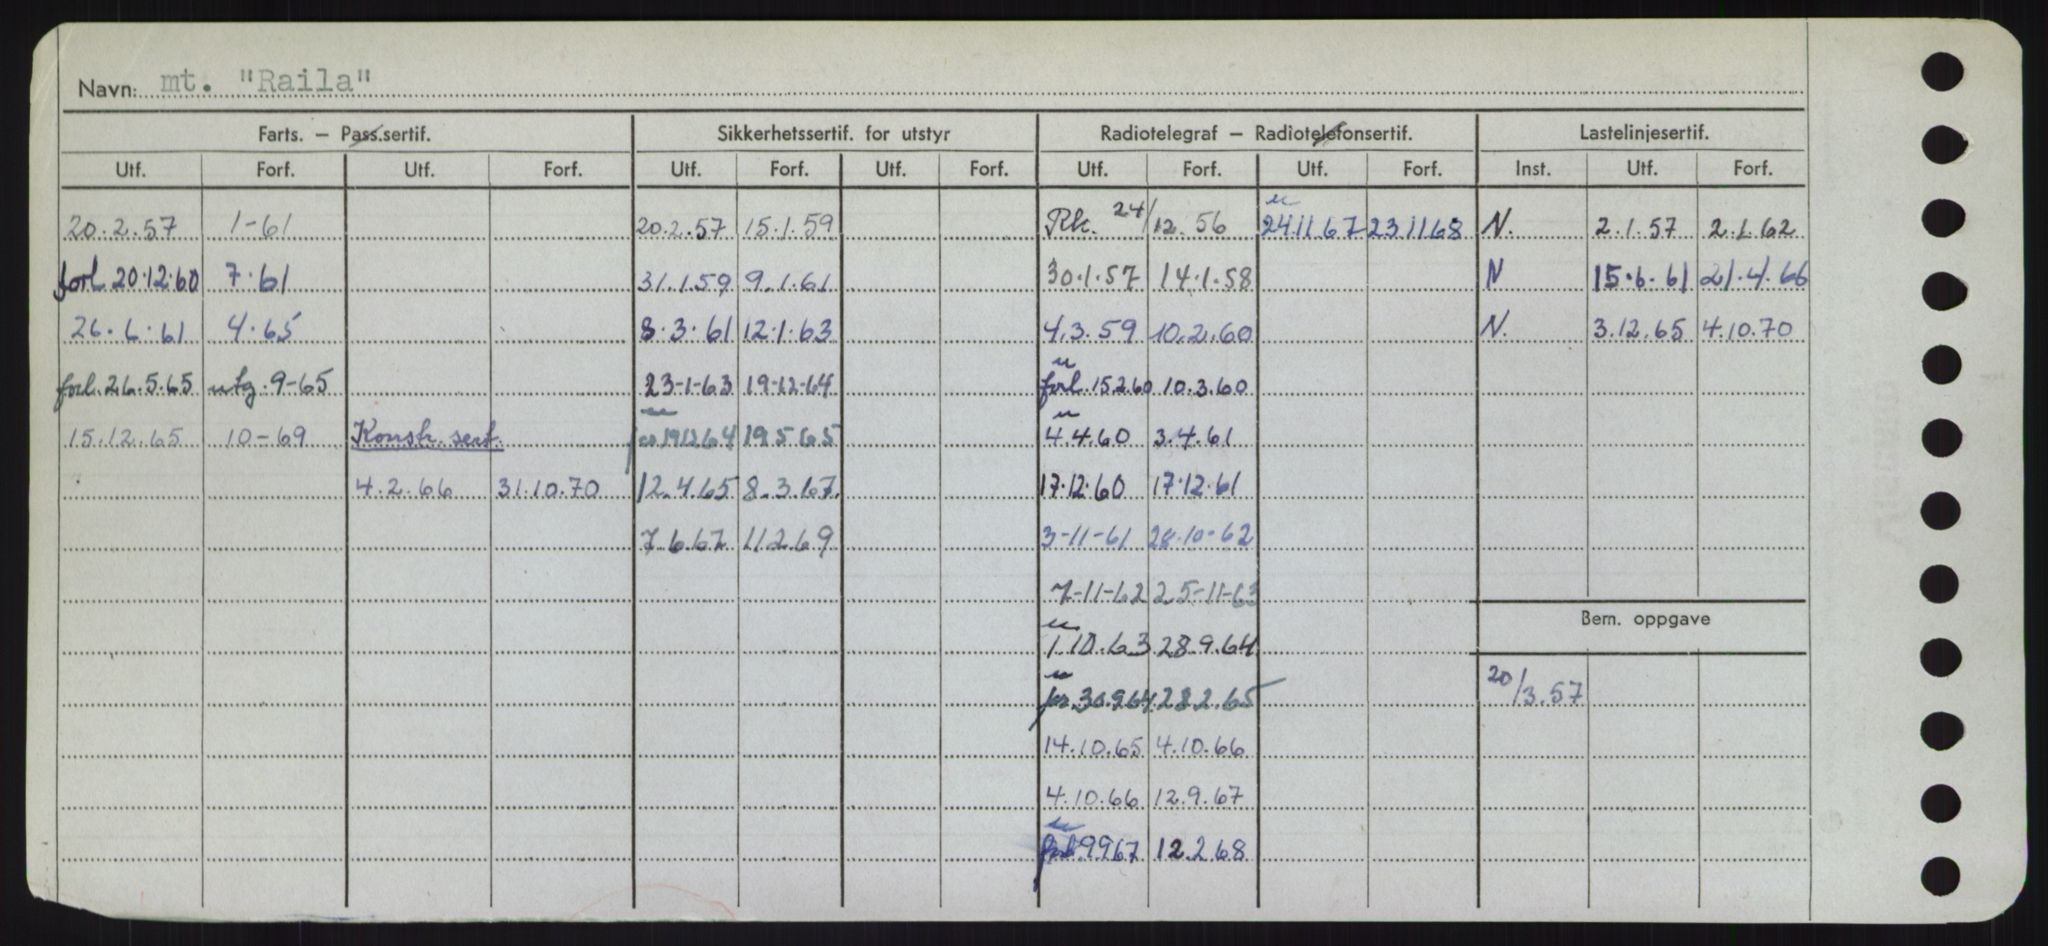 Navn: mt. "Raila"
Farts. — Pass.sertif. Sikkerhetssertif. for utstyr Radiotelegraf — Radiotelefonsertif. Lastelinjesertif.
Utf. Forf. Utf. Forf. Utf. Forf. Utf. Forf. Utf. Forf. Utf. Forf. Inst. Utf. Forf.
20.2.57 1-61 20.2.57 15.1.59 Rk. 24/12.56 u 24 11 67 23 11 68 N. 2.1.57 2.1.62
forl 20.12.60 7.61 31.1.59 9.1.61 30.1.57 14.1.58 N 15.6.61 21.4.66
26.6.61 4.65 8.3.61 12.1.63 4.3.59 10.2.60 N. 3.12.65 4.10.70
forl. 26.5.65 utg. 9-65 23-1-63 19-12-64 u forl. 15.2.60 10.3.60
15.12.65 10-69 Konstr. sert. u 19 12 64 19 5 65 u 4.4.60 3.4.61
4.2.66 31.10.70 12.4.65 8.3.67. 17.12.60 17.12.61
7.6.67 11 2 69 3-11-61 28.10-62
7-11-62 25-11-63
u 1.10.63 28.9.64
Bem. oppgave
u 30.9.64 28.2.65 20/3.57
14.10.65 4.10.66
4.10.66 12.9.67
u forl. 9 9 67 12.2 68